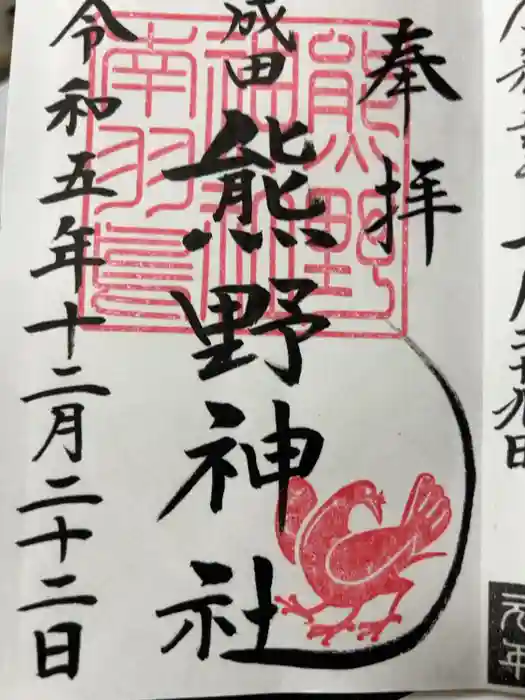 奉拝
成田
熊野神社
令和五年十二月二十二日
熊野
神社
元年